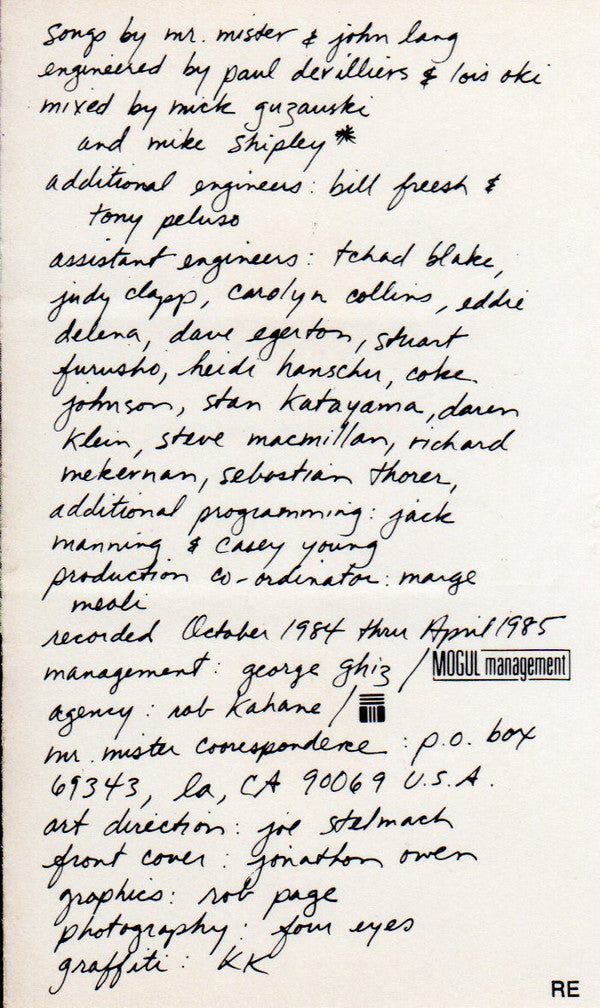 songs by mr. mister & john lang
engineered by paul devilliers & lois oki
mixed by mick guzauski
and mike shipley*
additional engineers: bill freesh &
tony peluso
assistant engineers: tchad blake,
judy clapp, carolyn collins, eddie
delena, dave egerton, stuart
furusho, heidi hanschu, coke
johnson, stan katayama, daren
klein, steve macmillan, richard
mckernan, sebastian thorer,
additional programming: jack
manning & casey young
production co-ordinator: marge
meoli
recorded October 1984 thru April 1985
management: george ghiz / MOGUL management
agency: rob kahane /
mr. mister coorespondence: p.o. box
69343, la, CA 90069 U.S.A.
art direction: joe stelmach
front cover: jonathon owen
graphics: rob page
photography: four eyes
graffiti: KK
RE